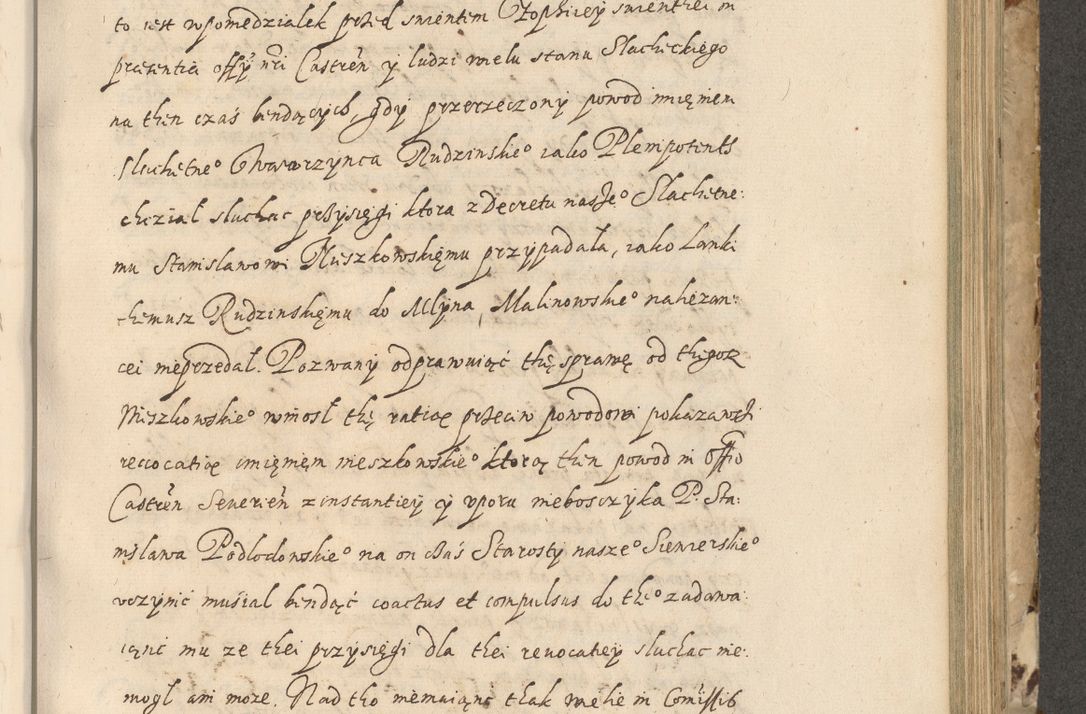 to iest wponiedzialek przed swientem Czophiey swientrei in
presentia offy nri Castren y ludzi wielu stanu Slacheckiego
na then czas bendących, gdy przerzeczony powod imięniem
slachetne° Wawrzynca Rudzinskie° iako Plenipotents
chcział sluchac przysięgi ktora z Decretu nasze° Slachetne:
mu Stanislawowi Mieszkowskięmu przypadała, iako Lanki
themusz Rudzinskięmu do Młyna Malinowskie° nalieżan:
cei nieprzedał. Pozwany odprawuiąć thę sprawę od thegosz
Mieszkowskie° wniosł thę ratię przeciw powodowi pokazawszi
reuocatią imięniem mieszkowskie° ktorą then powod in offio
Castren Seuerien z instantiey y vporu nieboszczyka P. Sta:
nislawa Podlodowskie° na on czas Starosty nasze° Siewierskie°
vczynić musiał bendąć coactus et compulsus do the° zadawa
iąnć mu ze thei przysięgi dla thei reuocatiey sluchac nie:
mogl ani moze. Nad tho niemaiąnc thak wielie in Comissib